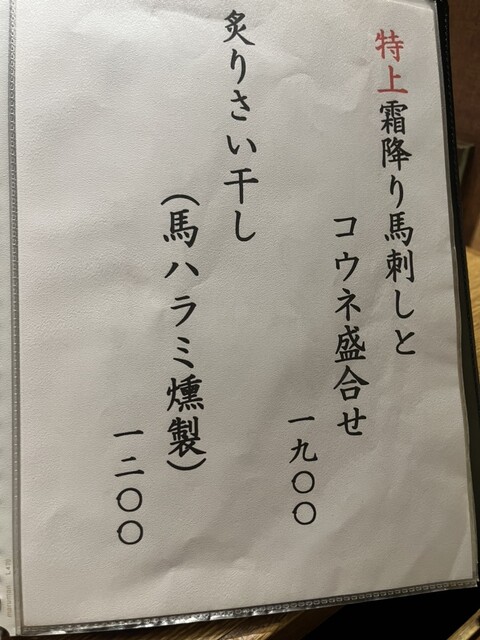 特上霜降り馬刺しと
コウネ盛合せ
一九〇〇
炙りさい干し
(馬ハラミ燻製)
一二〇〇